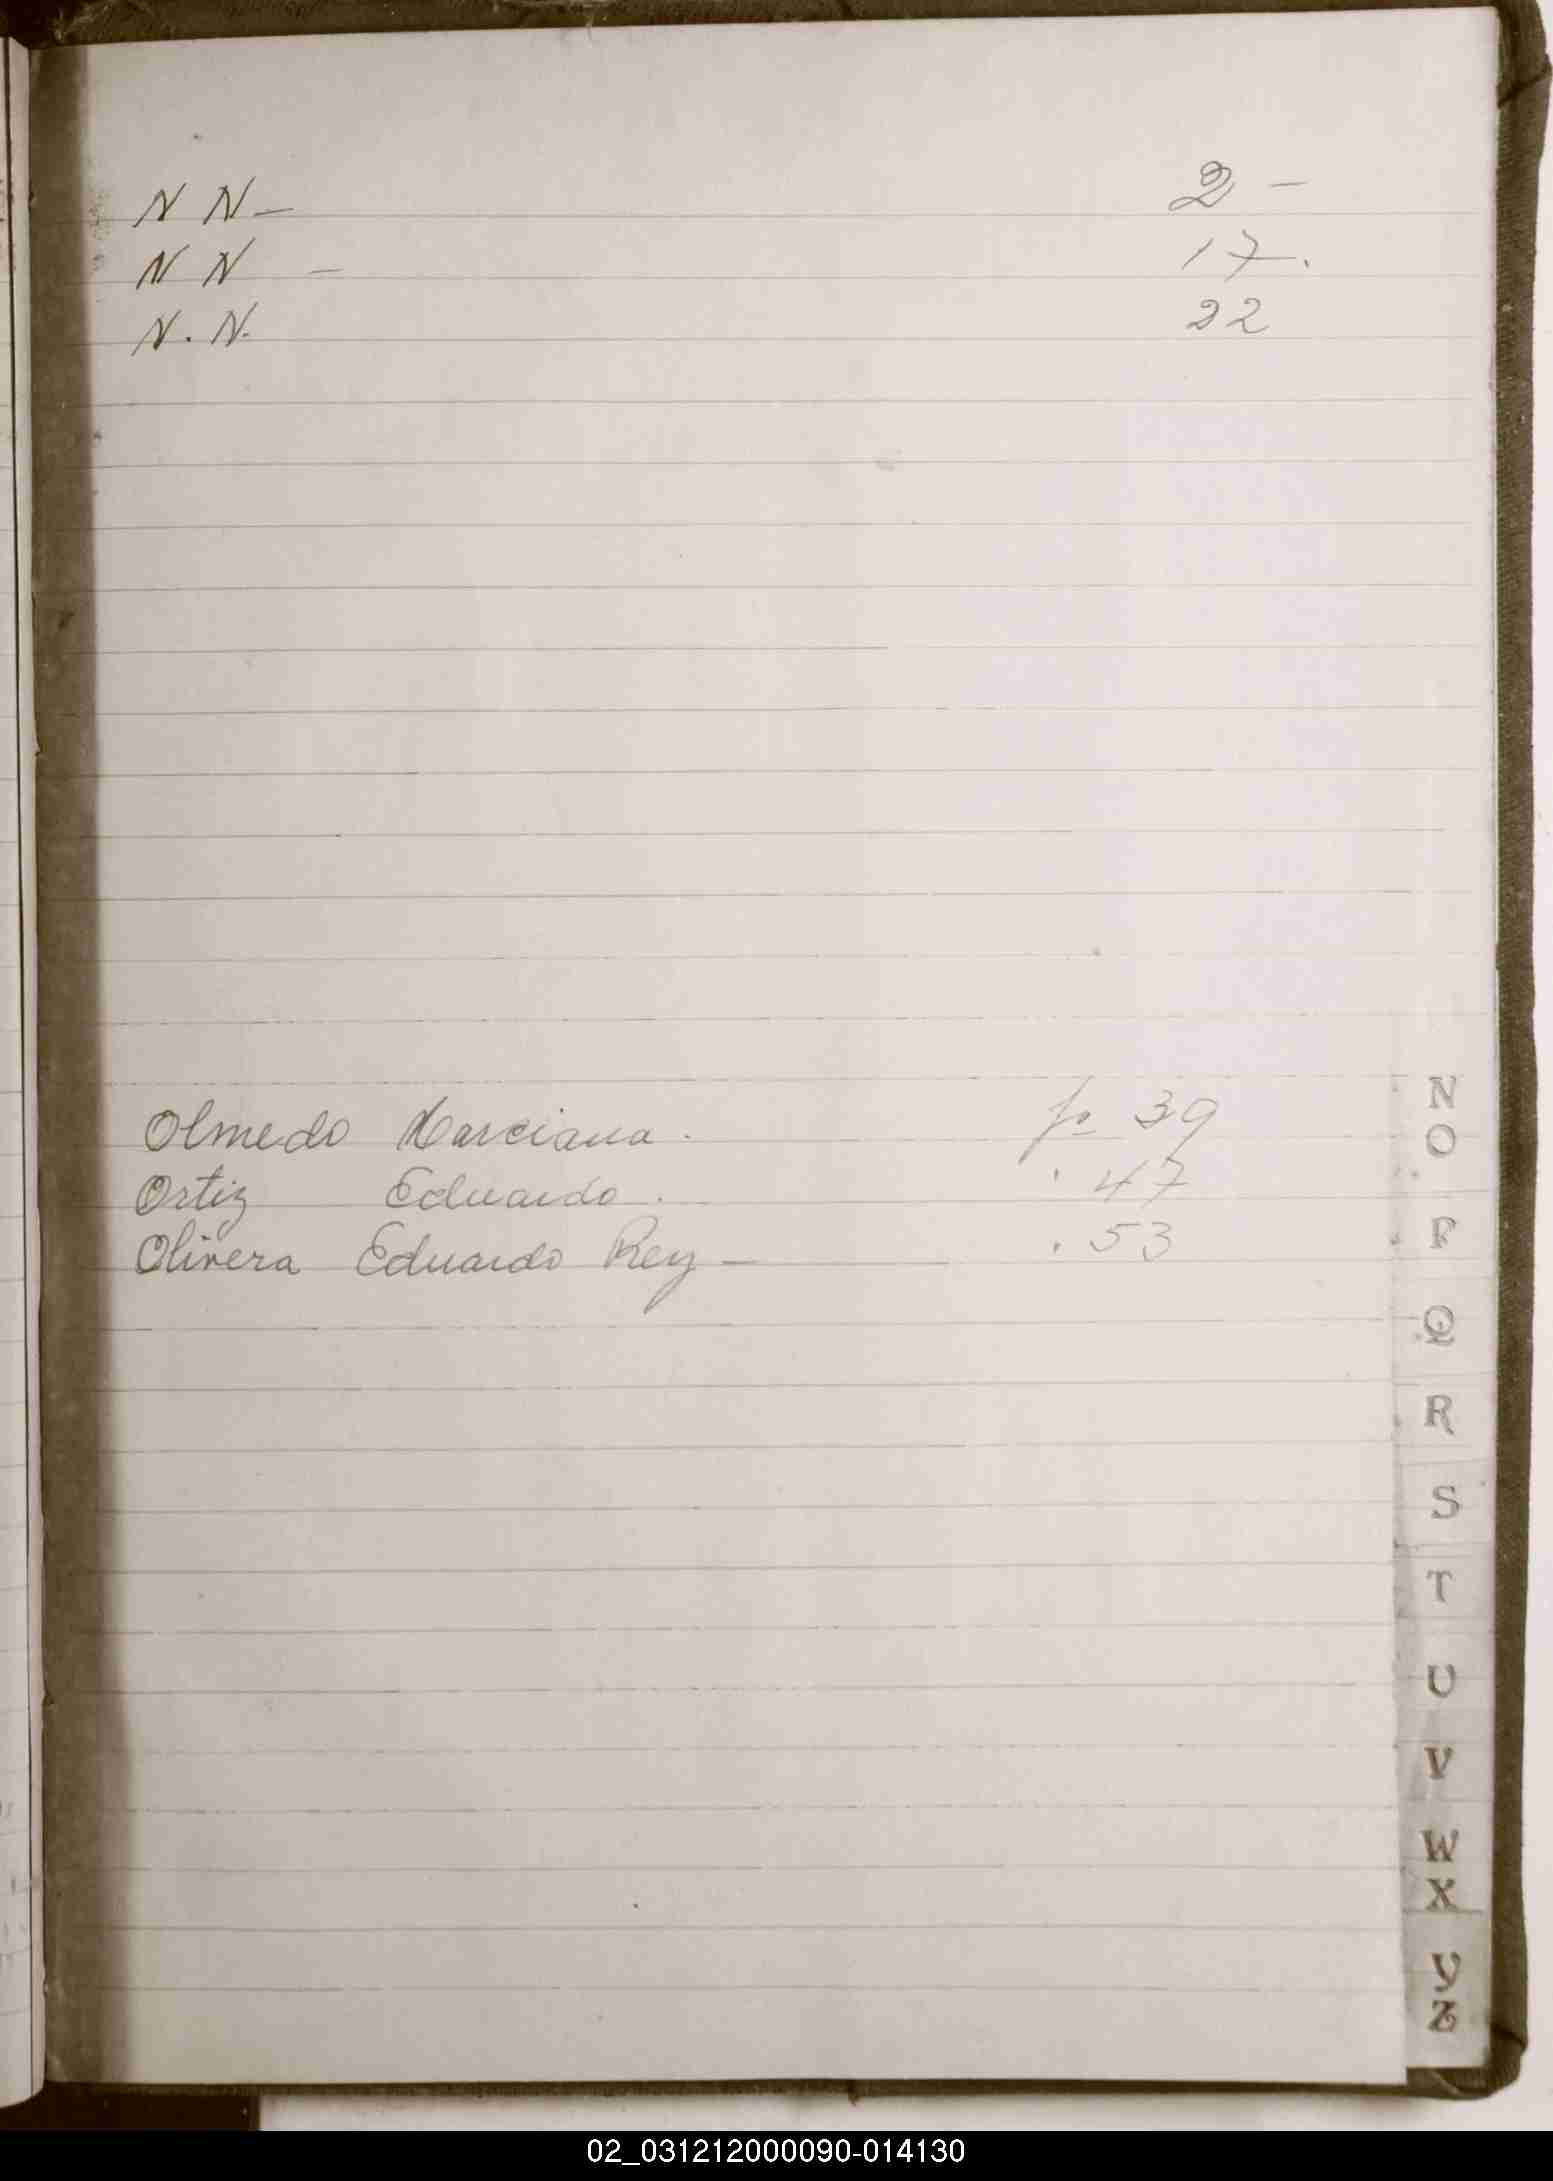 N N — 2 —
N N — 17.
N. N. 22
Olmedo Marciana. fo 39
Ortiz Eduardo. . 47
Olivera Eduardo Rey — . 53
N
O
P
Q
R
S
T
U
V
W
X
Y
Z
02_031212000090-014130